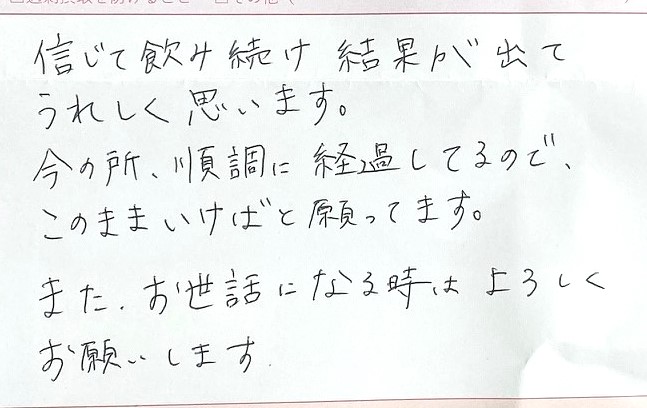 信じて飲み続け 結果が出て
うれしく思います。
今の所、順調に経過してるので、
このままいけばと願ってます。
また、お世話になる時はよろしく
お願いします